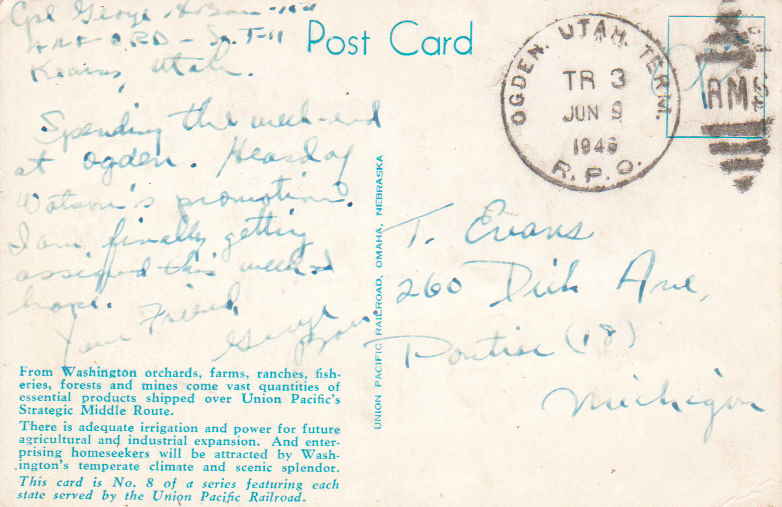 Cpl George A
Kearns, Utah.
Spending the week-end
at Ogden. Heard of
Watson's promotion.
I am finally getting
assigned this week I
hope.
Your Friend,
George
From Washington orchards, farms, ranches, fish-
eries, forests and mines come vast quantities of
essential products shipped over Union Pacific's
Strategic Middle Route.
There is adequate irrigation and power for future
agricultural and industrial expansion. And enter-
prising homeseekers will be attracted by Wash-
ington's temperate climate and scenic splendor.
This card is No. 8 of a series featuring each
state served by the Union Pacific Railroad.
Post Card
UNION PACIFIC RAILROAD, OMAHA, NEBRASKA
OGDEN, UTAH, TERM.
TR 3
JUN 9
R. P. O.
RMS
T. Evans
260 Dick Ave,
Pontiac (18)
Michigan